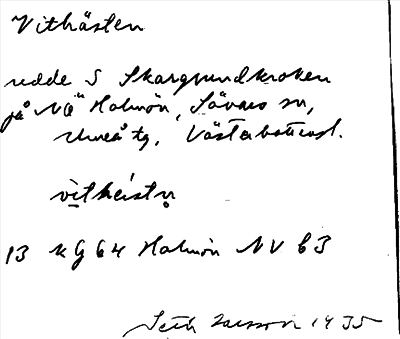 Vithästen
redde S Skärgrundkroken
på NÖ Holmön, Sävars sn,
Umeå tg, Västerbottens l.
vìtheistn̥
13 KG 64 Holmön NV b3
Seth Larsson 1935